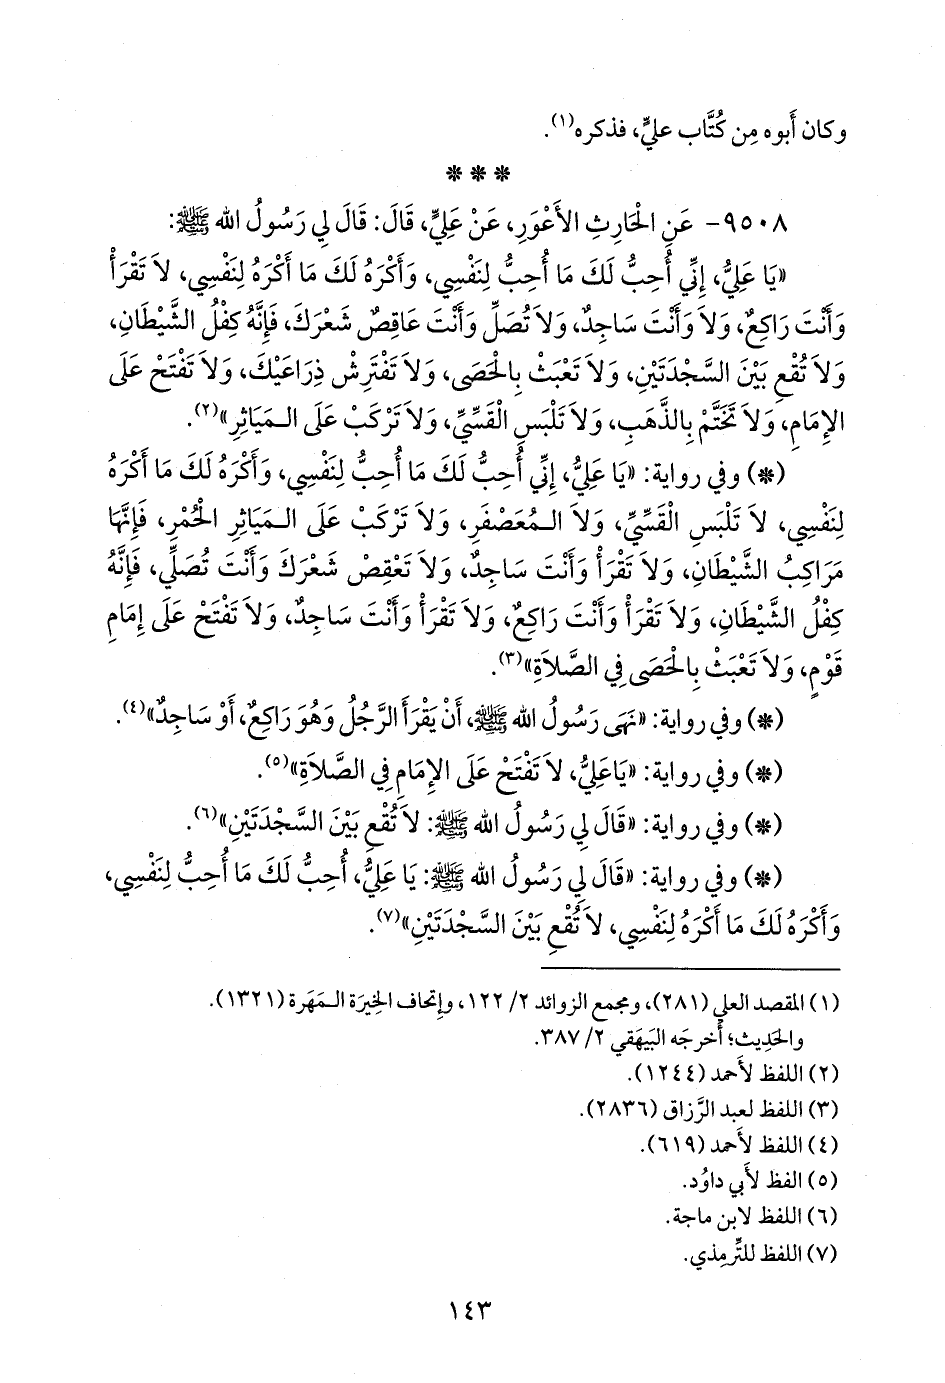 وكان أَبوه مِن كُتَّاب عليٍّ، فذكره(١).
* * *
٩٥٠٨- عَنِ الْحَارِثِ الأَعْوَرِ، عَنْ عَلِيٍّ، قَالَ: قَالَ لِي رَسُولُ الله ﷺ:
«يَا عَلِيُّ، إِنِّي أُحِبُّ لَكَ مَا أُحِبُّ لِنَفْسِي، وَأَكْرَهُ لَكَ مَا أَكْرَهُ لِنَفْسِي، لاَ تَقْرَأْ
وَأَنْتَ رَاكِعٌ، وَلاَ وَأَنْتَ سَاجِدٌ، وَلاَ تُصَلِّ وَأَنْتَ عَاقِصٌ شَعْرَكَ، فَإِنَّهُ كِفْلُ الشَّيْطَانِ،
وَلاَ تُقْعِ بَيْنَ السَّجْدَتَيْنِ، وَلاَ تَعْبَثْ بِالْحَصَى، وَلاَ تَفْتَرِشْ ذِرَاعَيْكَ، وَلاَ تَفْتَحْ عَلَى
الإِمَامِ، وَلاَ تَخَتَّمْ بِالذَّهَبِ، وَلاَ تَلْبَسِ الْقَسِّيَّ، وَلاَ تَرْكَبْ عَلَى الـمَيَاثِرِ»(٢).
(*) وفي رواية: «يَا عَلِيُّ، إِنِّي أُحِبُّ لَكَ مَا أُحِبُّ لِنَفْسِي، وَأَكْرَهُ لَكَ مَا أَكْرَهُ
لِنَفْسِي، لاَ تَلْبَسِ الْقَسِّيَّ، وَلاَ الـمُعَصْفَرَ، وَلاَ تَرْكَبْ عَلَى الـمَيَاثِرِ الْحُمْرِ، فَإِنَّهَا
مَرَاكِبُ الشَّيْطَانِ، وَلاَ تَقْرَأْ وَأَنْتَ سَاجِدٌ، وَلاَ تَعْقِصْ شَعْرَكَ وَأَنْتَ تُصَلِّي، فَإِنَّهُ
كِفْلُ الشَّيْطَانِ، وَلاَ تَقْرَأْ وَأَنْتَ رَاكِعٌ، وَلاَ تَقْرَأْ وَأَنْتَ سَاجِدٌ، وَلاَ تَفْتَحْ عَلَى إِمَامِ
قَوْمٍ، وَلاَ تَعْبَثْ بِالْحَصَى فِي الصَّلاَةِ»(٣).
(*) وفي رواية: «نَهَى رَسُولُ الله ﷺ، أَنْ يَقْرَأَ الرَّجُلُ وَهُوَ رَاكِعٌ، أَوْ سَاجِدٌ»(٤).
(*) وفي رواية: «يَاعَلِيُّ، لاَ تَفْتَحْ عَلَى الإِمَامِ فِي الصَّلاَةِ»(٥).
(*) وفي رواية: «قَالَ لِي رَسُولُ الله ﷺ: لاَ تُقْعِ بَيْنَ السَّجْدَتَيْنِ»(٦).
(*) وفي رواية: «قَالَ لِي رَسُولُ الله ﷺ: يَا عَلِيُّ، أُحِبُّ لَكَ مَا أُحِبُّ لِنَفْسِي،
وَأَكْرَهُ لَكَ مَا أَكْرَهُ لِنَفْسِي، لاَ تُقْعِ بَيْنَ السَّجْدَتَيْنِ»(٧).
(١) المقصد العلي (٢٨١)، ومجمع الزوائد ٢/ ١٢٢، وإتحاف الخِيرَة الـمَهَرة (١٣٢١).
والحَدِيث؛ أَخرجَه البَيهَقي ٢/ ٣٨٧.
(٢) اللفظ لأَحمد (١٢٤٤).
(٣) اللفظ لعبد الرَّزاق (٢٨٣٦).
(٤) اللفظ لأَحمد (٦١٩).
(٥) الفظ لأَبي داوُد.
(٦) اللفظ لابن ماجة.
(٧) اللفظ للتِّرمِذي.
١٤٣